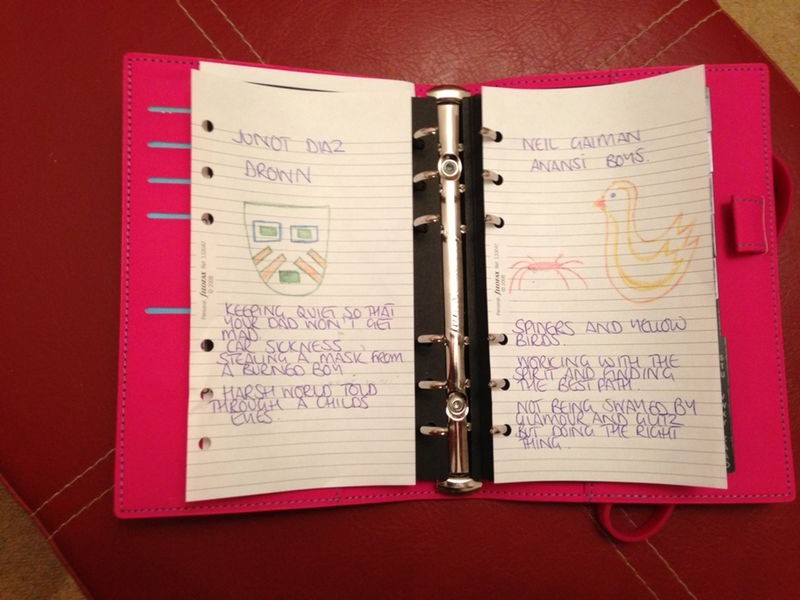 JUNOT DIAZ
DROWN
KEEPING QUIET SO THAT
YOUR DAD WON'T GET
MAD
CAR SICKNESS
STEALING A MASK FROM
A BURNED BOY
HARSH WORLD TOLD
THROUGH A CHILDS
EYES
Personal filofax Ref 133047
© 2008
NEIL GAIMAN
ANANSI BOYS.
SPIDERS AND YELLOW
BIRDS.
WORKING WITH THE
SPIRIT AND FINDING
THE BEST PATH
NOT BEING SWAYED BY
GLAMOUR AND GLITZ
BUT DOING THE RIGHT
THING.
Personal filofax